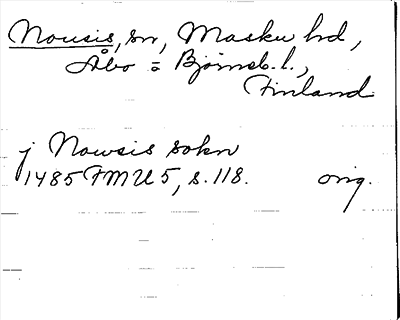 Nousis, sn, Masku hd,
Åbo = Björneb. l.,
Finland
j Nowsis sokn
1485 FMU 5, s. 118. orig.